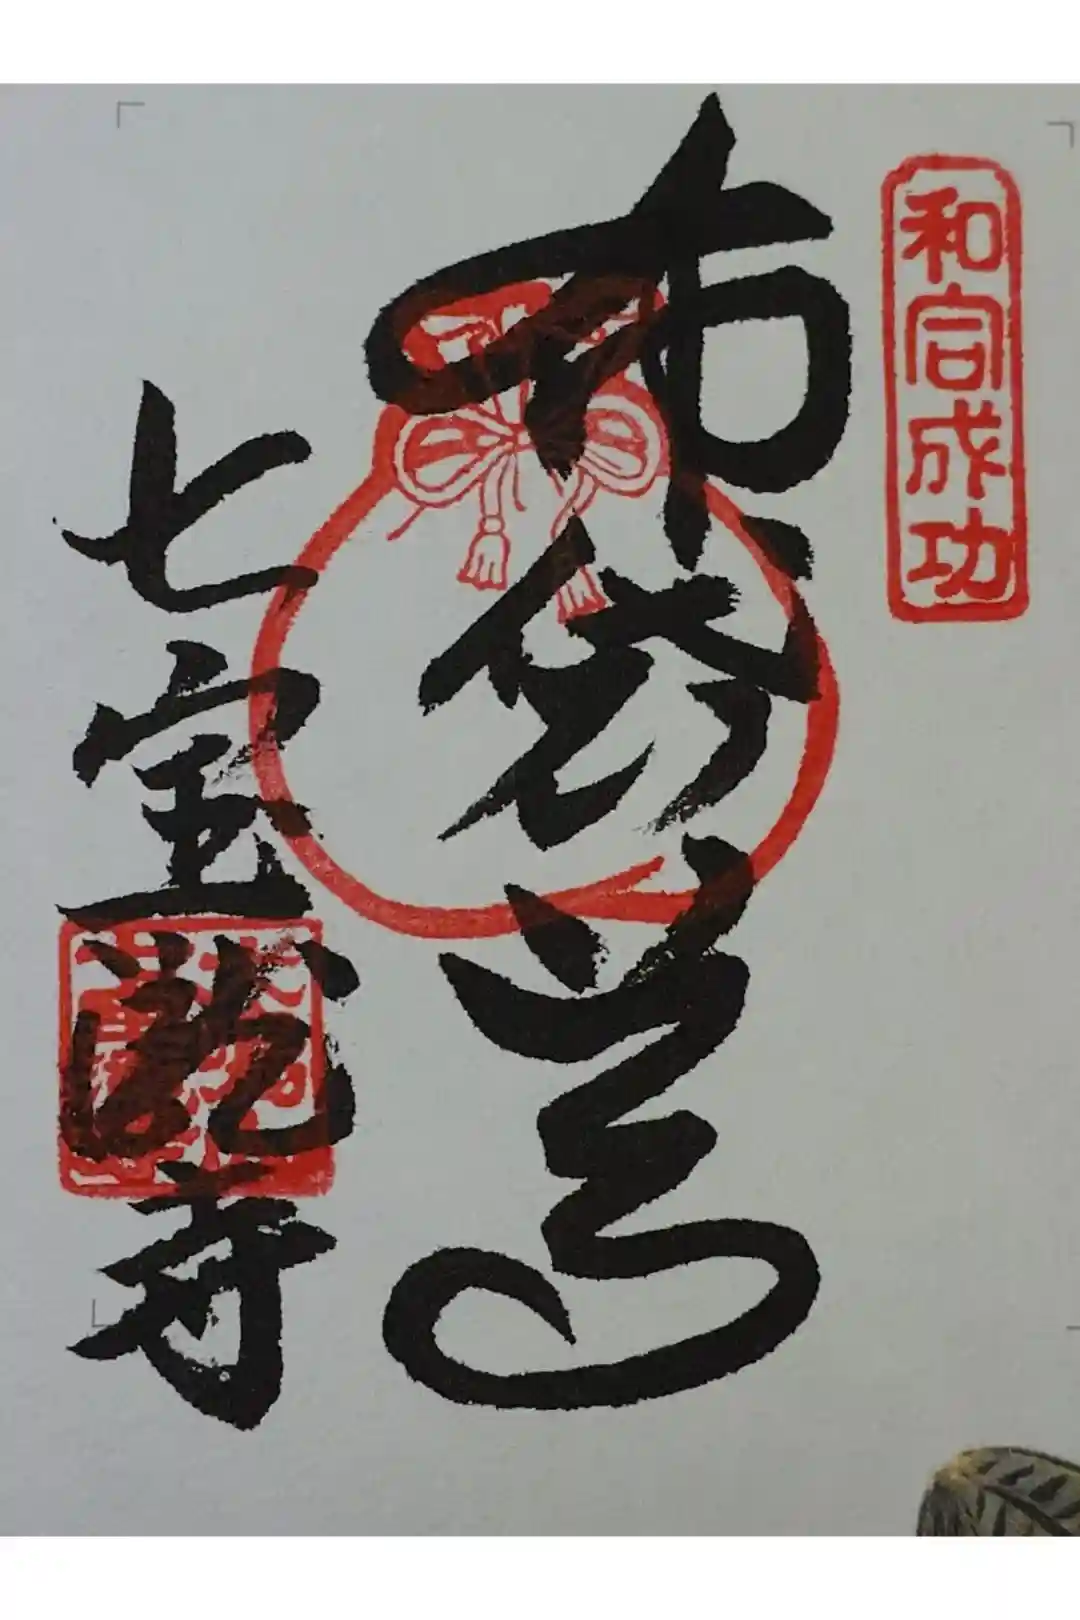 和合成功
布袋尊
七宝瀧寺